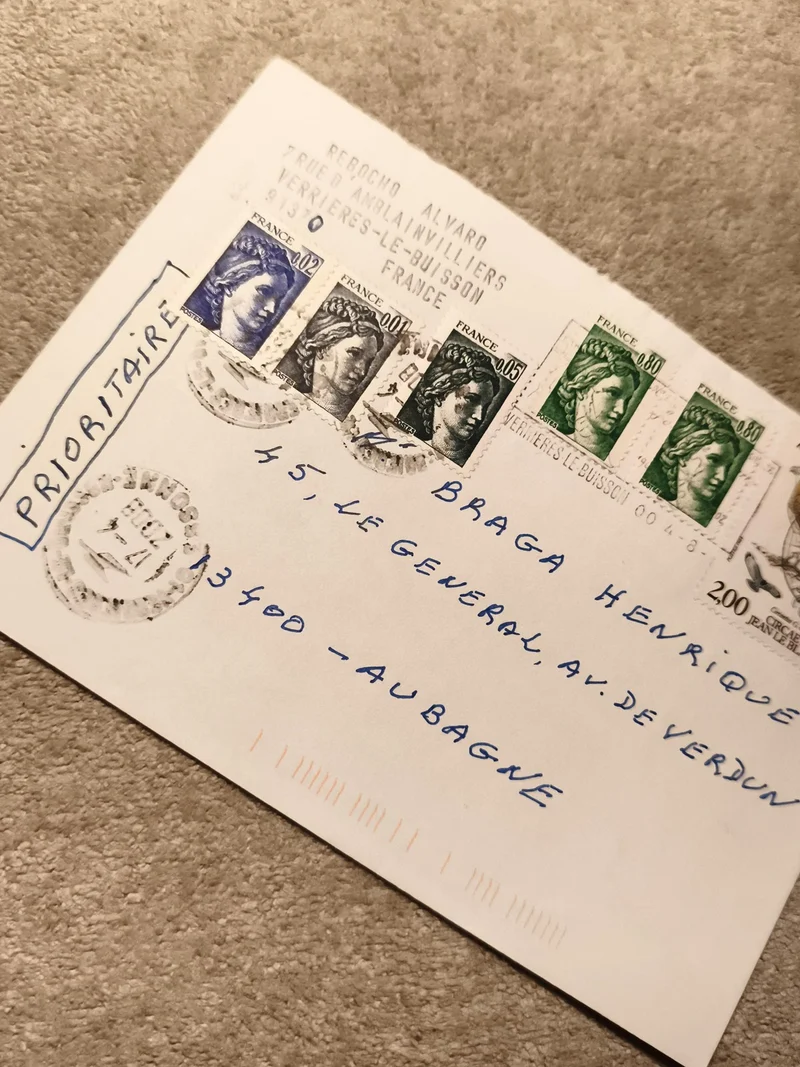 REBOCHO ALVARO
7 RUE D AMBLAINVILLIERS
VERRIERES-LE-BUISSON
91370
FRANCE
PRIORITAIRE
FRANCE
0.02
POSTES
FRANCE
0.01
POSTES
FRANCE
0.05
POSTES
FRANCE
0.80
POSTES
FRANCE
0.80
POSTES
VERRIERES LE BUISSON 00 4-8-
2,00
CIRCAE
JEAN LE BL
Mr
BRAGA HENRIQUE
45, LE GENERAL, AV. DE VERDUN
13400 - AUBAGNE